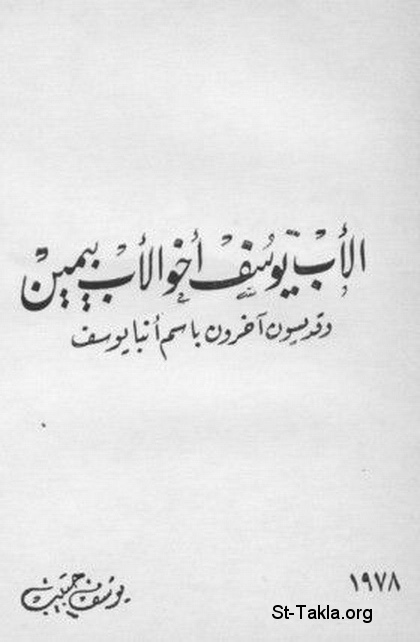 الأب يوسف أخو الأب بيمين
وقديسون آخرون باسم أنبا يوسف
١٩٧٨
يوسف حبيب
St-Takla.org